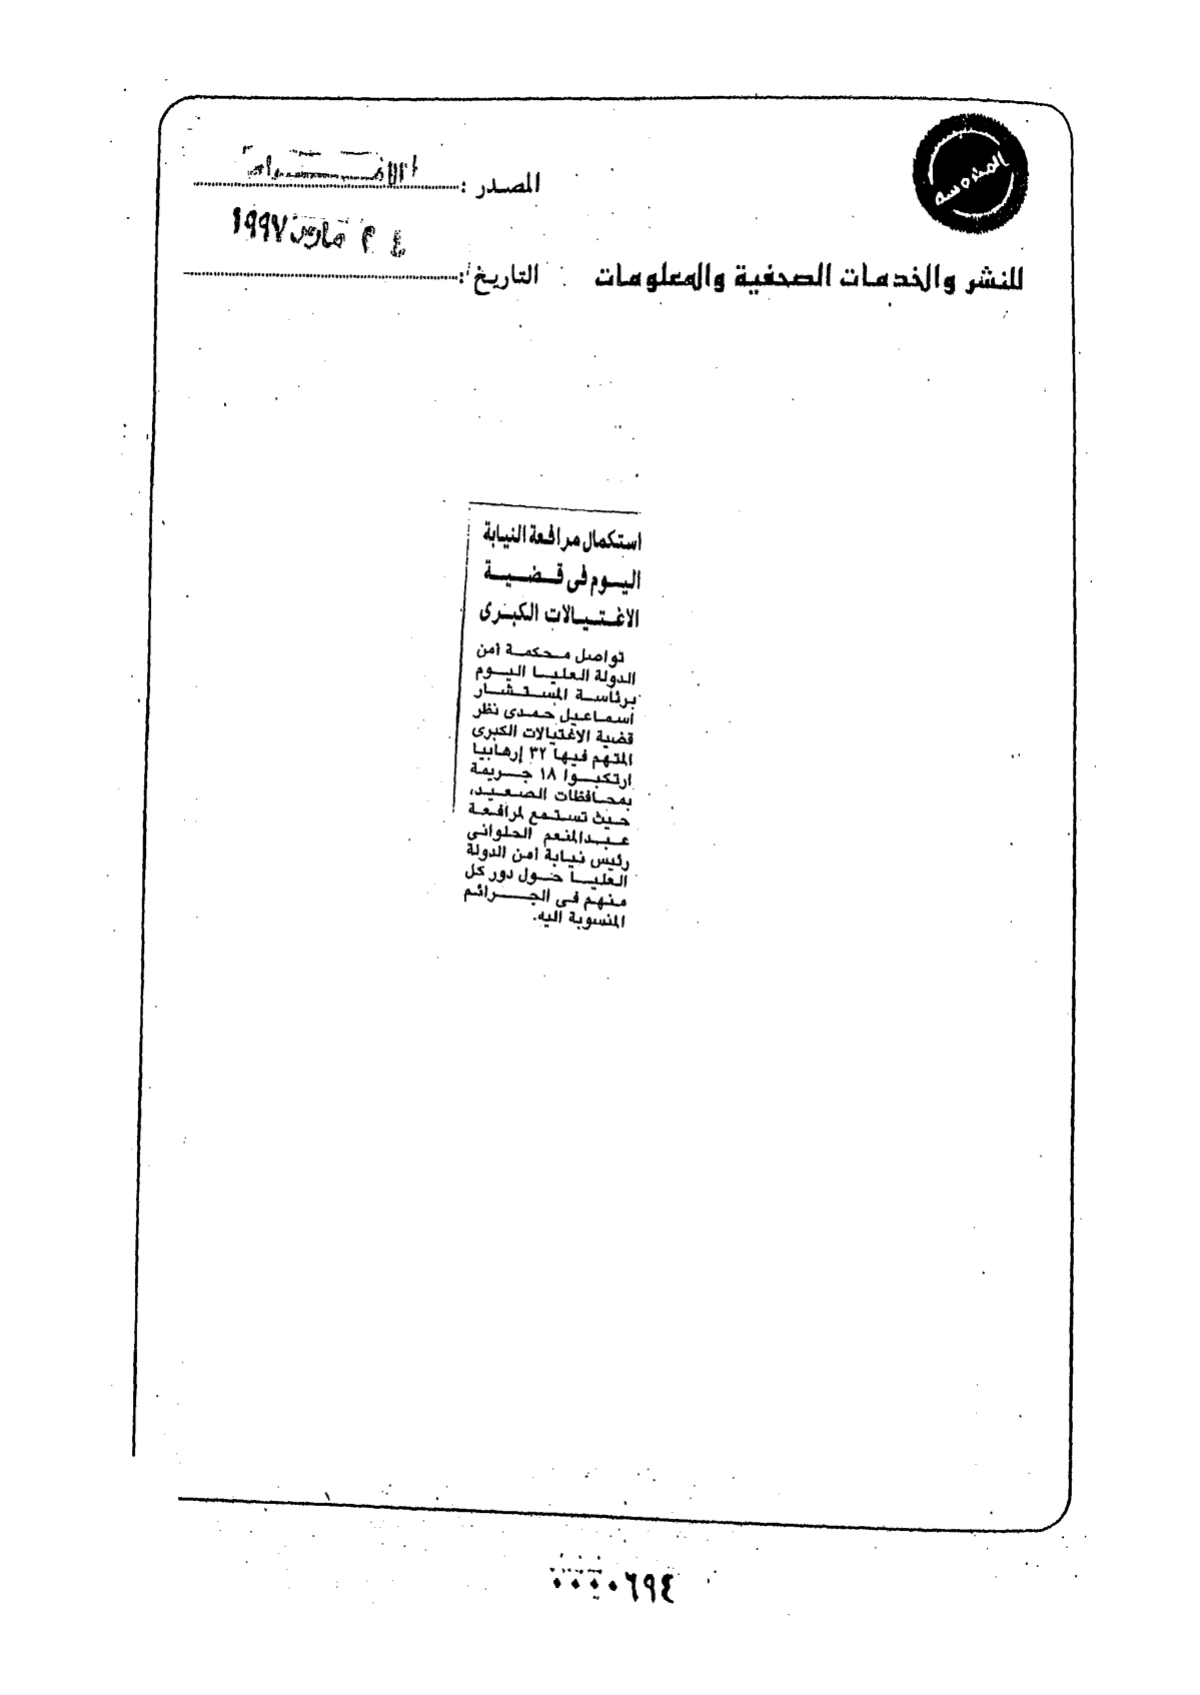 المحروسة
المصدر :
للنشر والخدمات الصحفية والمعلومات
التاريخ :
مارس ١٩٩٧
استكمال مرافعة النيابة
اليوم فى قضية
الاغتيالات الكبرى
تواصل محكمة أمن
الدولة العليا اليوم
برئاسة المستشار
اسماعيل حمدى نظر
قضية الاغتيالات الكبرى
المتهم فيها ٣٢ إرهابيا
ارتكبوا ١٨ جريمة
بمحافظات الصعيد،
حيث تستمع لمرافعة
عبدالمنعم الحلوانى
رئيس نيابة أمن الدولة
العليا حول دور كل
منهم فى الجرائم
المنسوبة اليه.
٠٠٠٠٦٩٤